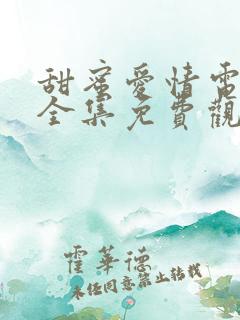 甜蜜愛情電
全集免費觀
霍華德
未经同意禁止转载